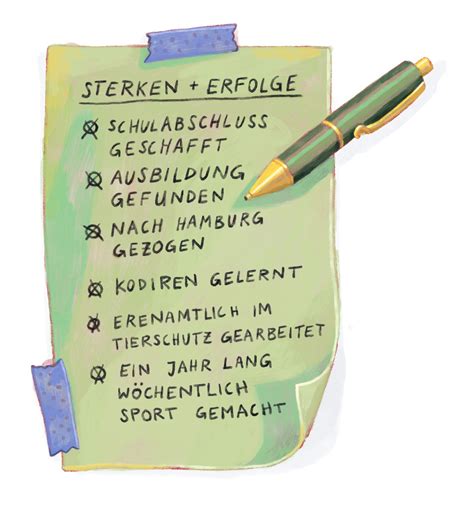 STERKEN + ERFOLGE
SCHULABSCHLUSS
GESCHAFFT
AUSBILDUNG
GEFUNDEN
NACH HAMBURG
GEZOGEN
KODIREN GELERNT
ERENAMTLICH IM
TIERSCHUTZ GEARBEITET
EIN JAHR LANG
WÖCHENTLICH
SPORT GEMACHT